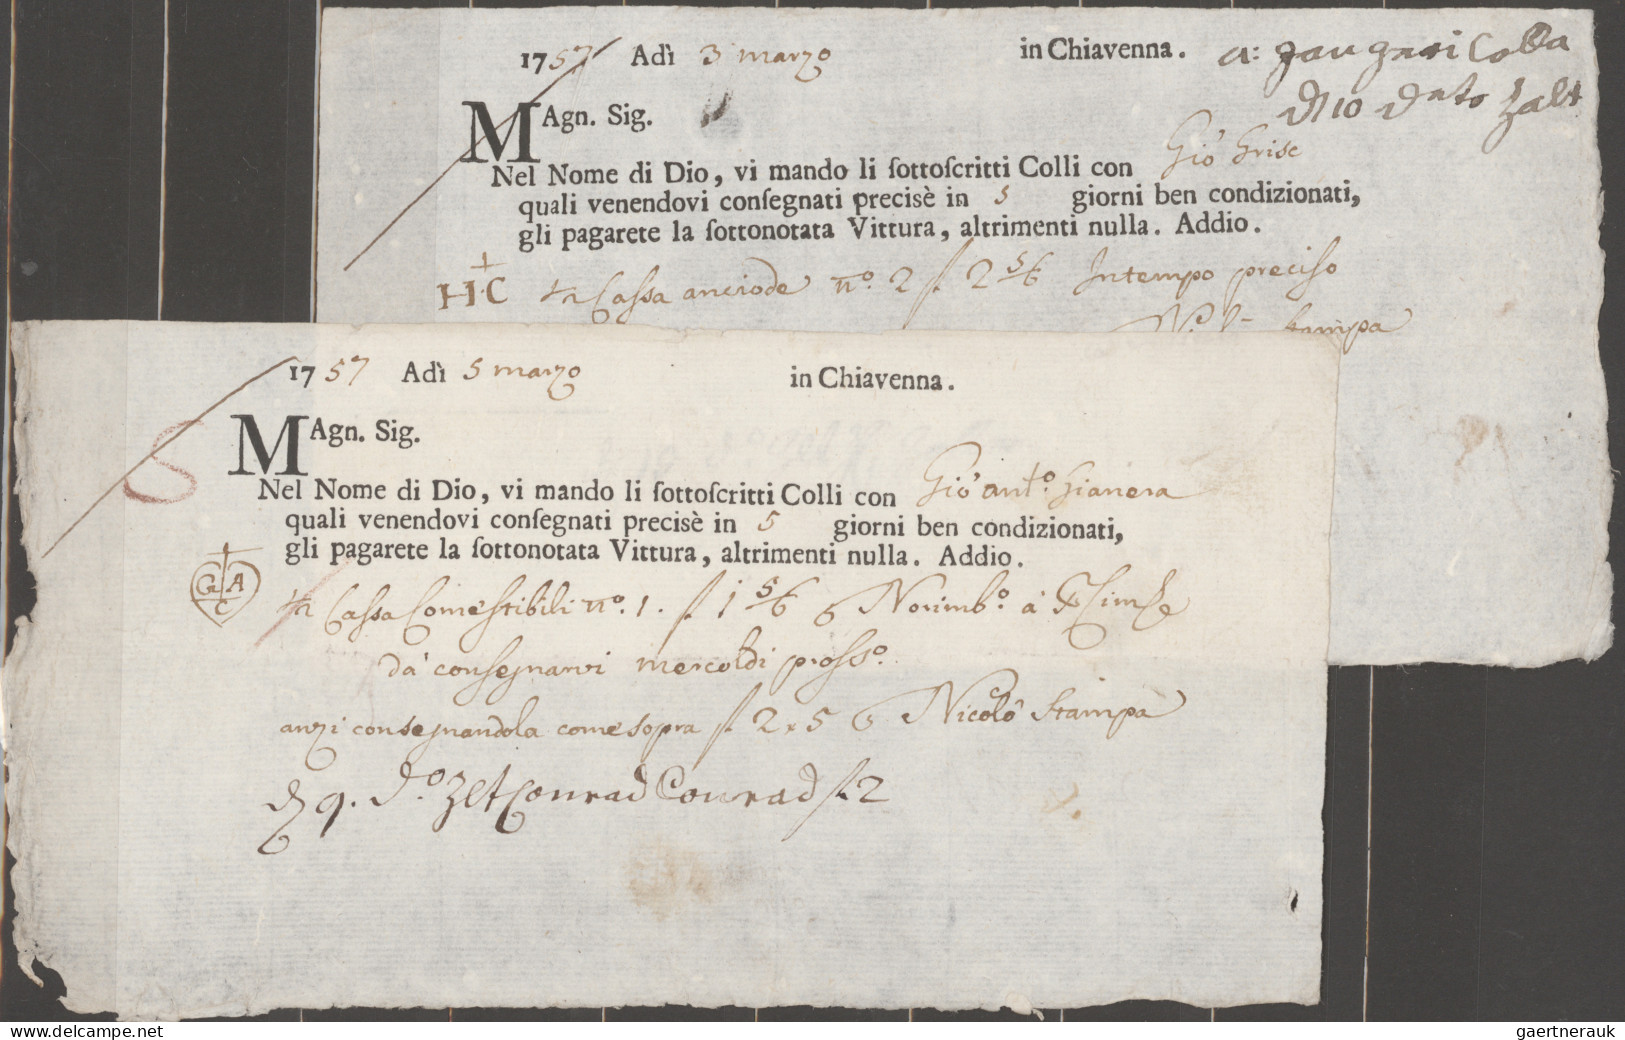 1757 Adì 3 marzo in Chiavenna.
MAgn. Sig.
Giò Grise
Nel Nome di Dio, vi mando li ſottoſcritti Colli con
quali venendovi conſegnati precisè in 5 giorni ben condizionati,
gli pagarete la ſottonotata Vittura, altrimenti nulla. Addio.
H.C Cassa anciode nº. 2 f. 2 5/6 Intempo preciso
Stampa
1757 Adì 5 marzo in Chiavenna.
MAgn. Sig.
Nel Nome di Dio, vi mando li ſottoſcritti Colli con Giò antº. Gianera
quali venendovi conſegnati precisè in 5 giorni ben condizionati,
gli pagarete la ſottonotata Vittura, altrimenti nulla. Addio.
G A C
Cassa Comestibili nº. 1. f. 1 5/6 Norimbº. à
dà consegnarvi mercoldi prossº.
anzi consegnandola come sopra f. 2 x 5 Nicolò Stampa
9. dº. Zlt Conrad Conrad f. 2
www.delcampe.net
gaertnerauk